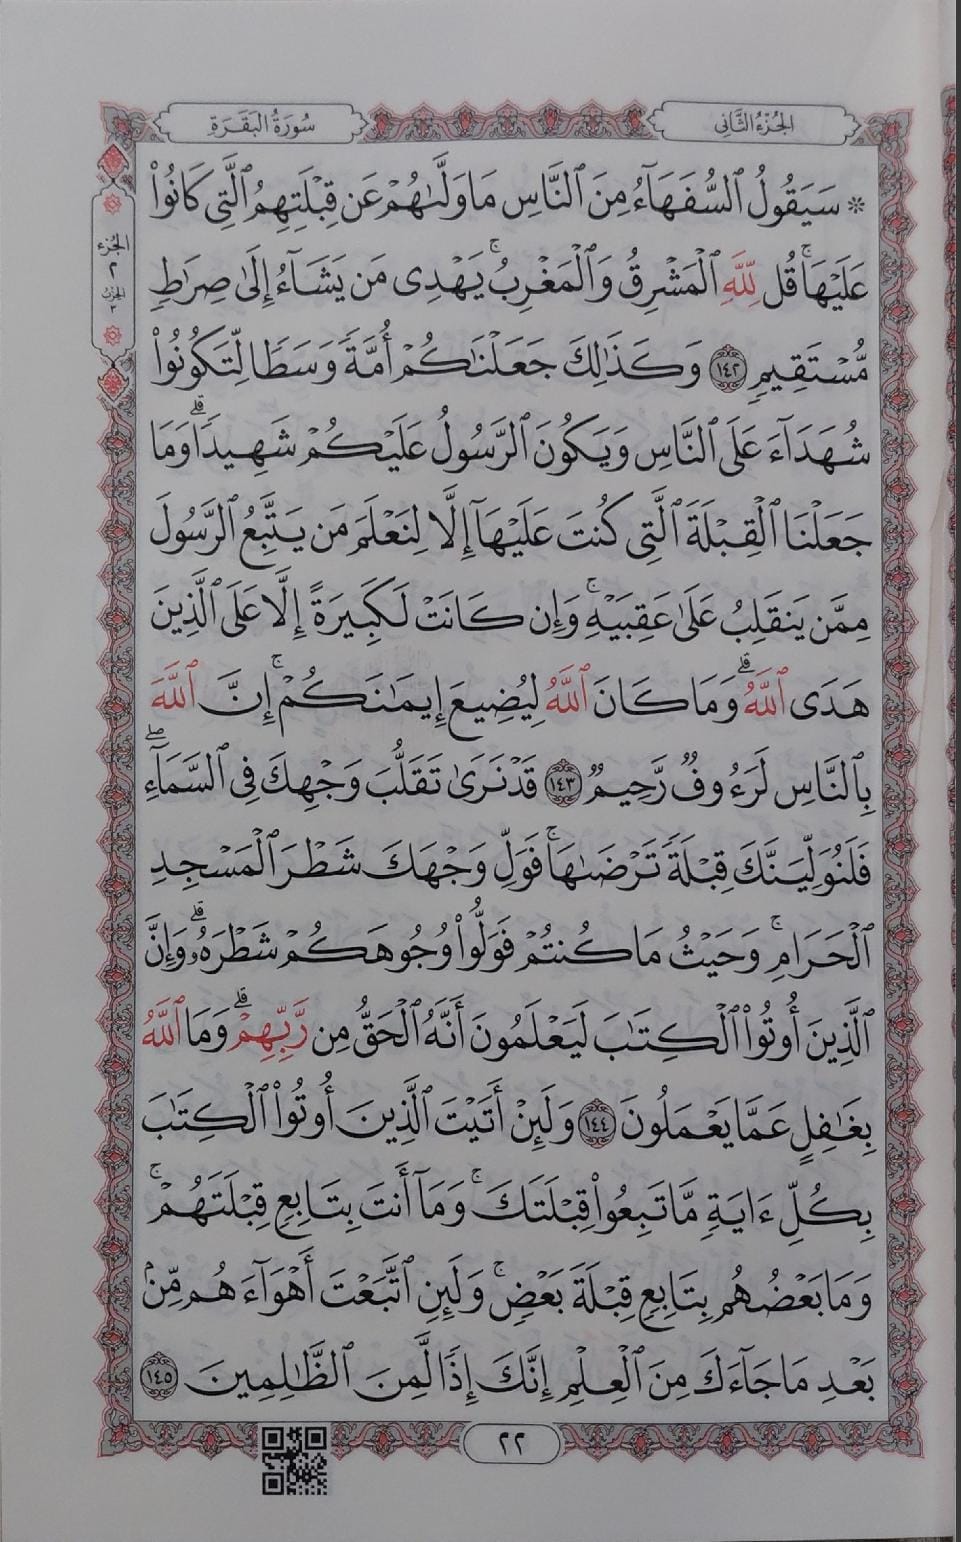 الجُزْءُ الثَّانِي
سُورَةُ البَقَرَةِ
۞ سَيَقُولُ ٱلسُّفَهَآءُ مِنَ ٱلنَّاسِ مَا وَلَّىٰهُمْ عَن قِبْلَتِهِمُ ٱلَّتِى كَانُوا۟
عَلَيْهَا ۚ قُل لِّلَّهِ ٱلْمَشْرِقُ وَٱلْمَغْرِبُ ۚ يَهْدِى مَن يَشَآءُ إِلَىٰ صِرَٰطٍ
مُّسْتَقِيمٍ ١٤٢ وَكَذَٰلِكَ جَعَلْنَٰكُمْ أُمَّةً وَسَطًا لِّتَكُونُوا۟
شُهَدَآءَ عَلَى ٱلنَّاسِ وَيَكُونَ ٱلرَّسُولُ عَلَيْكُمْ شَهِيدًا ۗ وَمَا
جَعَلْنَا ٱلْقِبْلَةَ ٱلَّتِى كُنتَ عَلَيْهَآ إِلَّا لِنَعْلَمَ مَن يَتَّبِعُ ٱلرَّسُولَ
مِمَّن يَنقَلِبُ عَلَىٰ عَقِبَيْهِ ۚ وَإِن كَانَتْ لَكَبِيرَةً إِلَّا عَلَى ٱلَّذِينَ
هَدَى ٱللَّهُ ۗ وَمَا كَانَ ٱللَّهُ لِيُضِيعَ إِيمَٰنَكُمْ ۚ إِنَّ ٱللَّهَ
بِٱلنَّاسِ لَرَءُوفٌ رَّحِيمٌ ١٤٣ قَدْ نَرَىٰ تَقَلُّبَ وَجْهِكَ فِى ٱلسَّمَآءِ ۖ
فَلَنُوَلِّيَنَّكَ قِبْلَةً تَرْضَىٰهَا ۚ فَوَلِّ وَجْهَكَ شَطْرَ ٱلْمَسْجِدِ
ٱلْحَرَامِ ۚ وَحَيْثُ مَا كُنتُمْ فَوَلُّوا۟ وُجُوهَكُمْ شَطْرَهُۥ ۗ وَإِنَّ
ٱلَّذِينَ أُوتُوا۟ ٱلْكِتَٰبَ لَيَعْلَمُونَ أَنَّهُ ٱلْحَقُّ مِن رَّبِّهِمْ ۗ وَمَا ٱللَّهُ
بِغَٰفِلٍ عَمَّا يَعْمَلُونَ ١٤٤ وَلَئِنْ أَتَيْتَ ٱلَّذِينَ أُوتُوا۟ ٱلْكِتَٰبَ
بِكُلِّ ءَايَةٍ مَّا تَبِعُوا۟ قِبْلَتَكَ ۚ وَمَآ أَنتَ بِتَابِعٍ قِبْلَتَهُمْ ۚ
وَمَا بَعْضُهُم بِتَابِعٍ قِبْلَةَ بَعْضٍ ۚ وَلَئِنِ ٱتَّبَعْتَ أَهْوَآءَهُم مِّنۢ
بَعْدِ مَا جَآءَكَ مِنَ ٱلْعِلْمِ إِنَّكَ إِذًا لَّمِنَ ٱلظَّٰلِمِينَ ١٤٥
الجزء
٢
الحزب
٣
٢٢